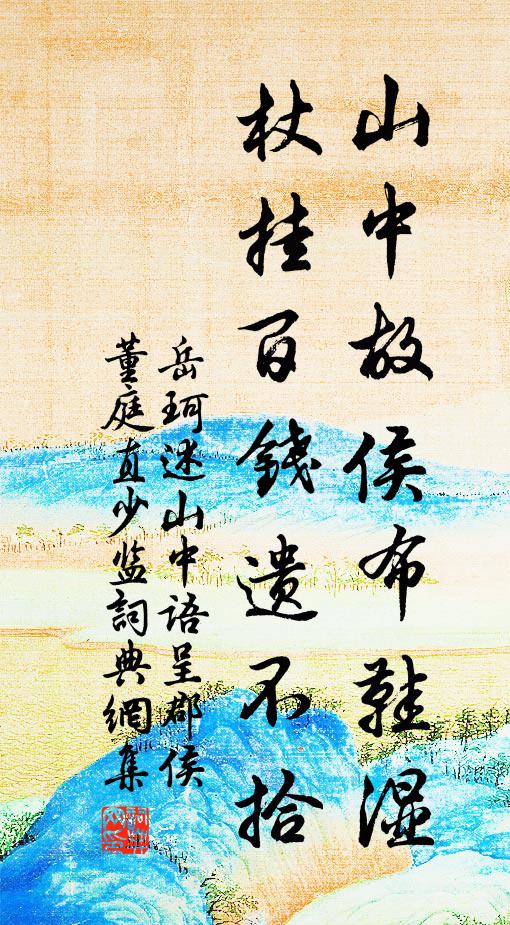 山中故侯布鞋湿
杖挂百錢遺不拾
岳珂述山中語呈郡侯
董庭直少監詞典網集